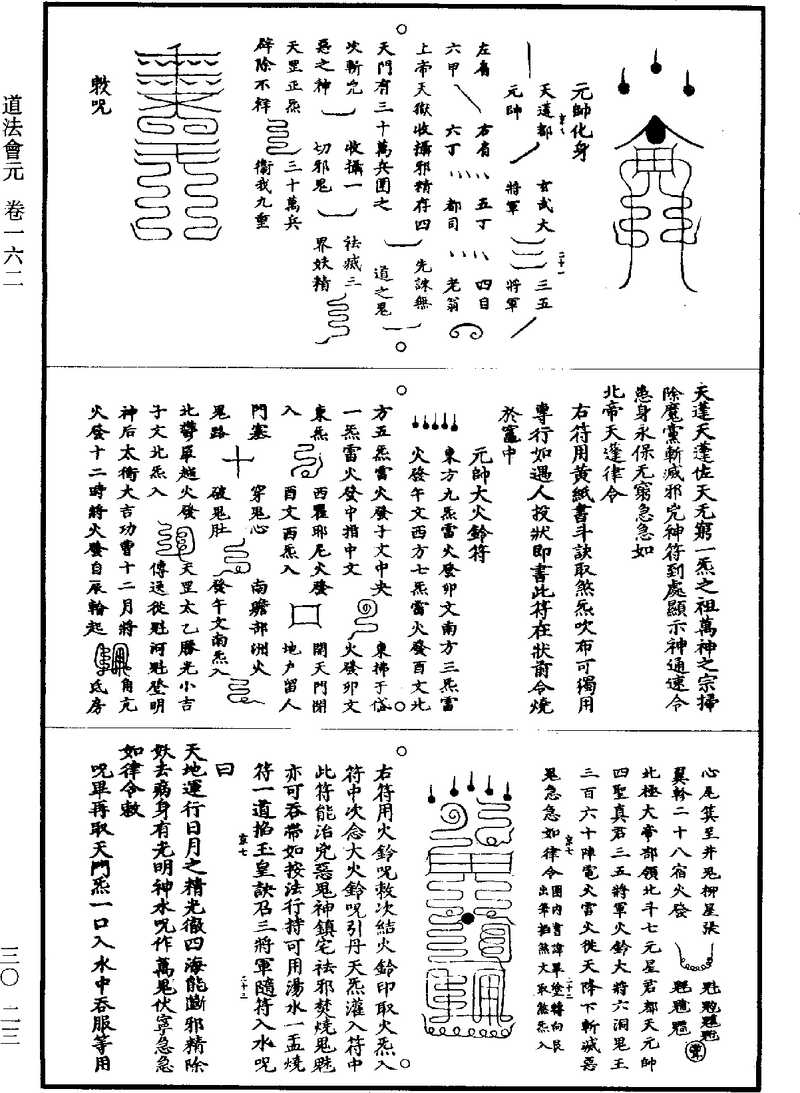 道法會元 卷一六二
三〇 二三
元帥化身
天蓬都 玄武大 三五
元帥 將軍 將軍
左肩 右肩 五丁 四目
六甲 六丁 都司 老翁
上帝天獄收攝邪精存四 先誅無
天門有三十萬兵圍之 道之鬼
次斬兇 收攝一 祛滅三
惡之神 切邪鬼 界妖精
天罡正炁 三十萬兵
辟除不祥 衛我九重
敕呪
天蓬天蓬佐天无窮一炁之祖萬神之宗掃
除魔黨斬滅邪兇神符到處顯示神通速令
患身永保无窮急急如
北帝天蓬律令
右符用黃紙書斗訣取煞炁吹布可獨用
專行如遇人投狀即書此符在狀前令燒
於竈中
元帥大火鈴符
東方九炁雷火發卯文南方三炁雷
火發午文西方七炁雷火發酉文北
方五炁雷火發子文中央 東拂于岱
一炁雷火發中指中文 火發卯文
東炁 西瞿耶尼火發 閉天門開
入 酉文西炁入 地户留人
門塞 穿鬼心 南贍部洲火
鬼路 破鬼肚 發午文南炁入
北鬱單越火發 天罡太乙勝光小吉
子文北炁入 傳送從魁河魁登明
神后太衝大吉功曹十二月將 角亢
火發十二時將火發自辰輪起 氐房
心尾箕至井鬼柳星張
翼軫二十八宿火發
北極大帝部領北斗七元星君都天元帥
四聖真君三五將軍火鈴大將六洞鬼王
三百六十陣電火雷火從天降下斬滅惡
鬼急急如律令 圈内書諱畢塗轉向艮
出筆掐煞文取煞炁入
右符用火鈴呪敕次結火鈴印取火炁入
符中次念大火鈴呪引丹天炁灌入符中
此符能治兇惡鬼神鎮宅祛邪焚燒鬼魅
亦可吞帶如按法行持可用湯水一盂燒
符一道掐玉皇訣召三將軍隨符入水呪
曰
天地運行日月之精光徹四海能斷邪精除
妖去病身有光明神水呪作萬鬼伏寧急急
如律令敕
呪畢再取天門炁一口入水中吞服等用